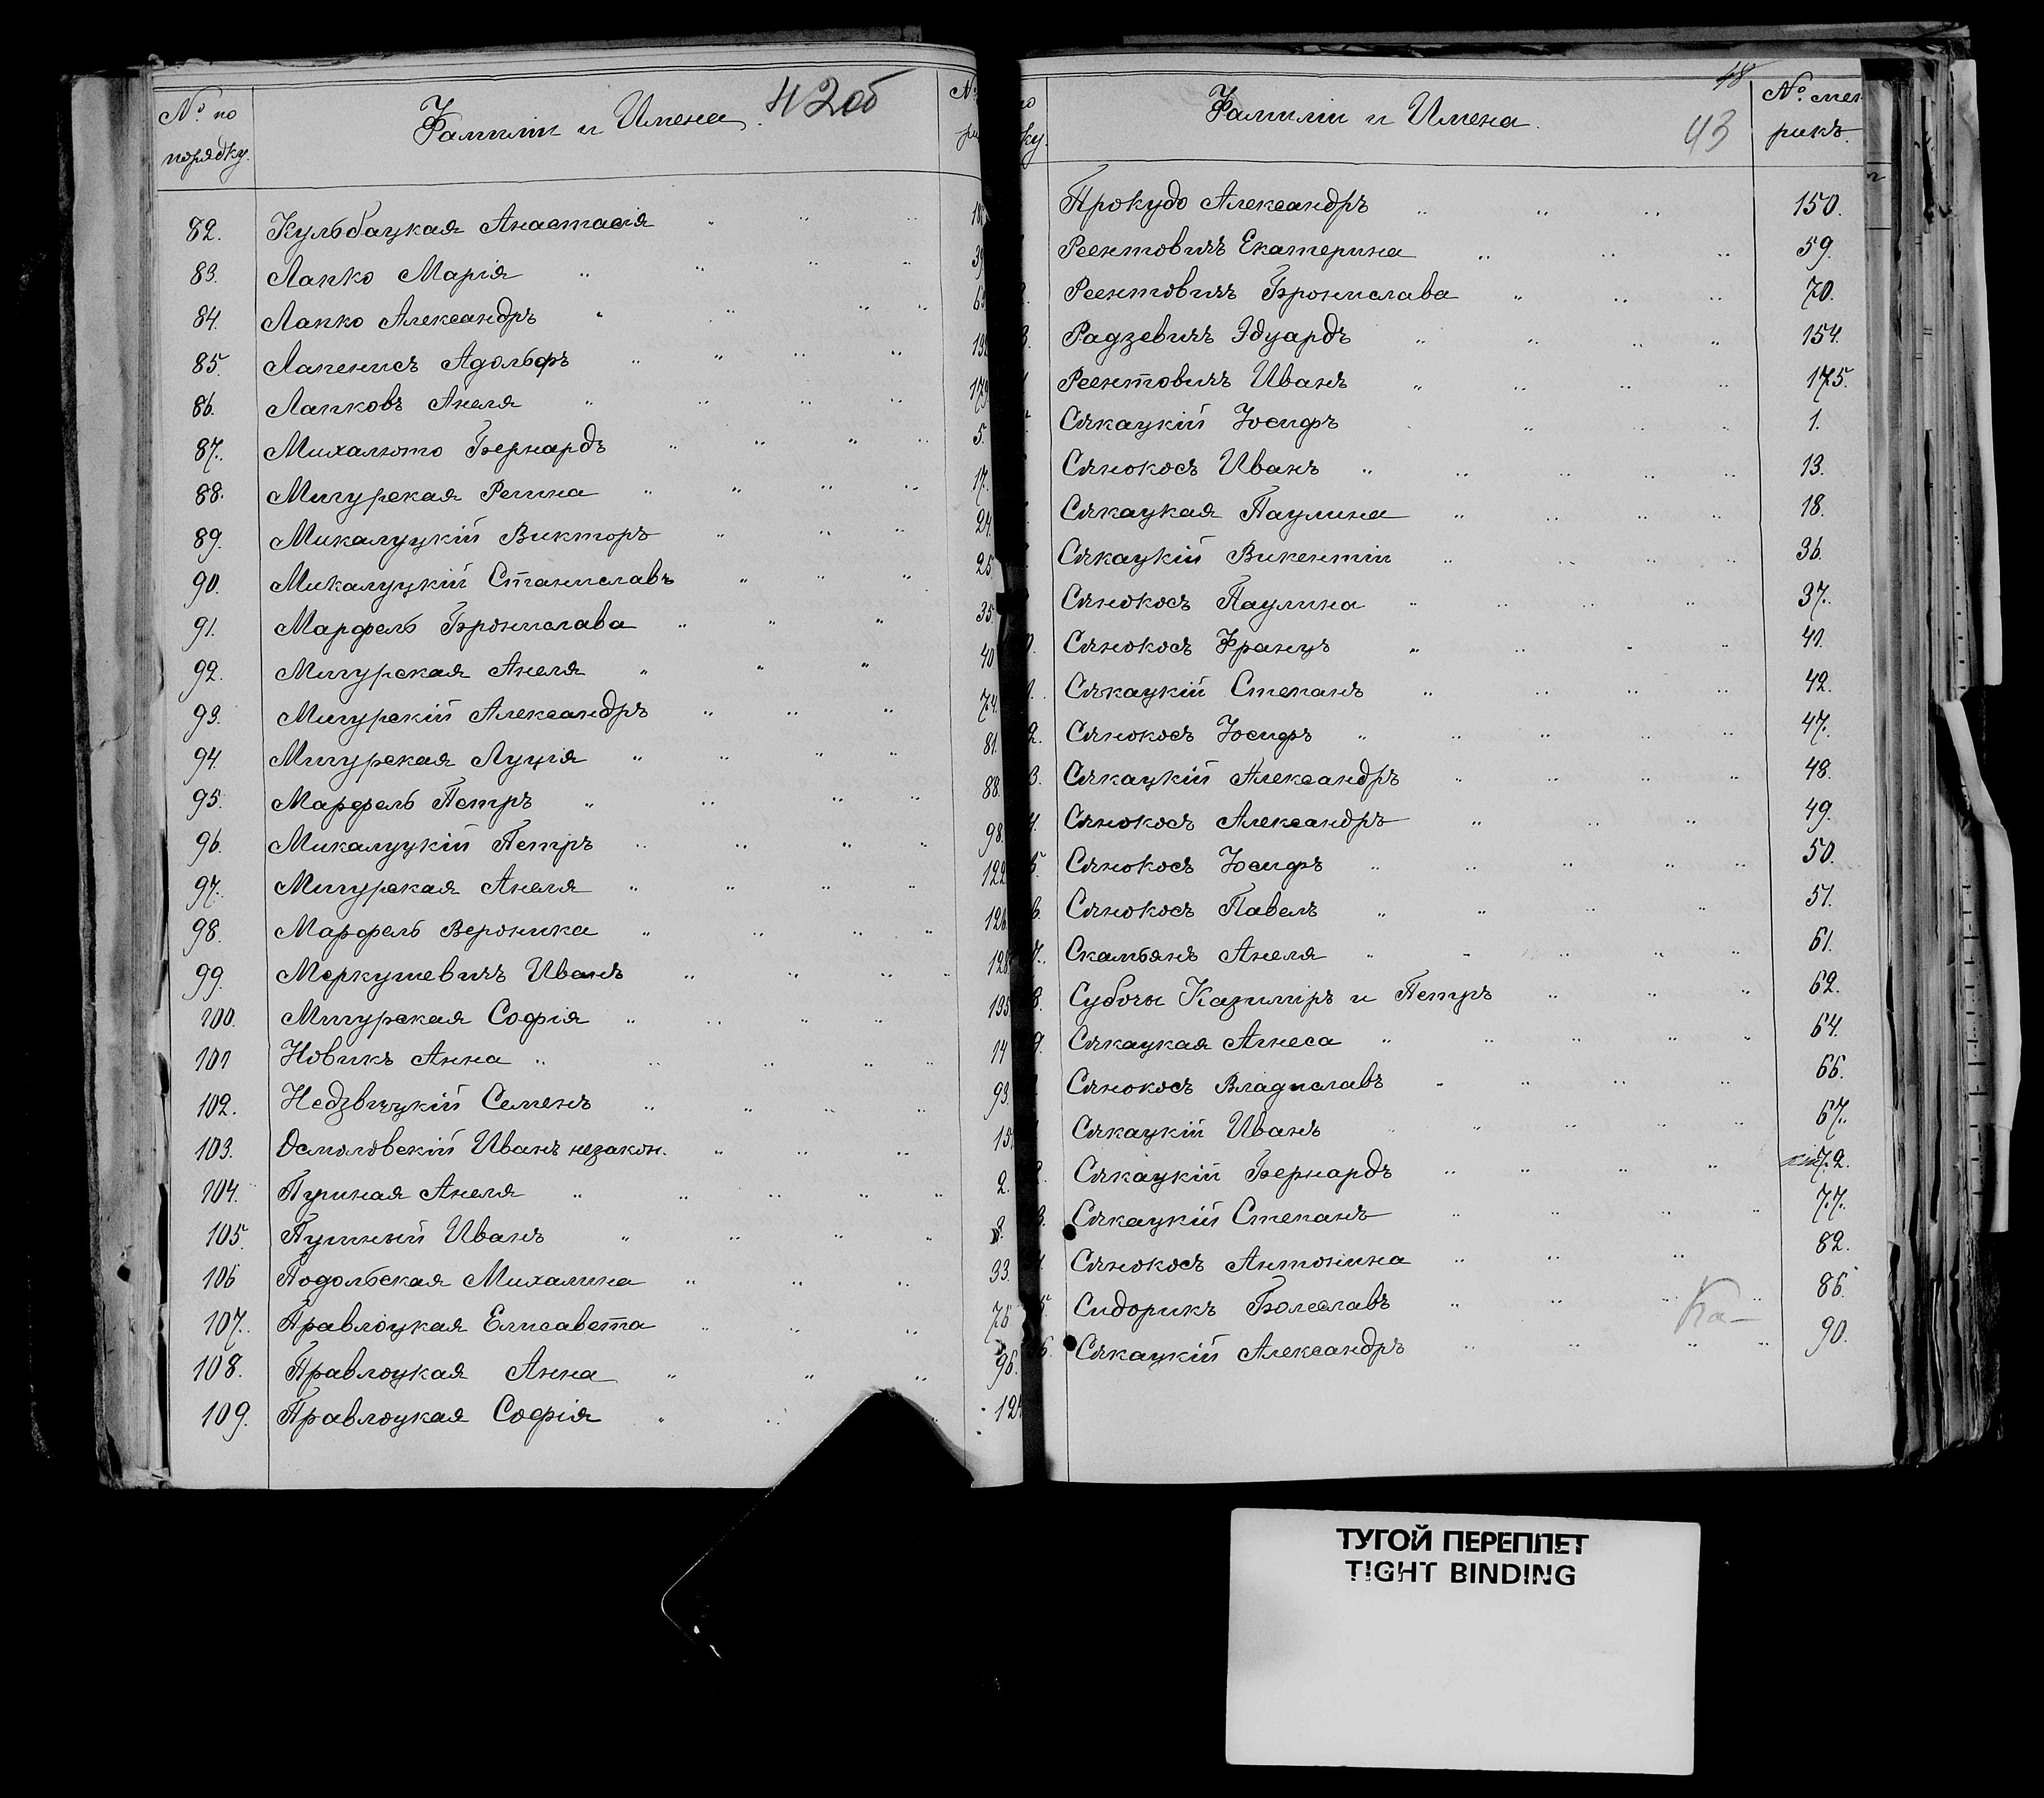 № по порядку.
Фамиліи и Имена.
42об
82. Кульбацкая Анастасія
83. Лапко Марія
84. Лапко Александръ
85. Лапенисъ Адольфъ
86. Лапковъ Анеля 179
87. Михалюто Бернардъ 5.
88. Мигурская Регина 17.
89. Микалуцкій Викторъ 24.
90. Микалуцкій Станиславъ 25
91. Марфель Брониславa 35.
92. Мигурская Анеля 40
93. Мигурскій Александръ 74.
94. Мигурская Луція 81.
95. Марфель Петръ 88.
96. Микалуцкій Петръ 98.
97. Мигурская Анеля 122
98. Марфель Вероника 126
99. Меркушевичъ Иванъ 128
100. Мигурская Софія 135
101 Новикъ Анна 14
102. Недзвѣцкій Семенъ 93.
103. Осмоловскій Иванъ незакон.
104. Пушная Анеля 2.
105. Пушный Иванъ 8.
106 Подольская Михалина 33.
107. Правлоцкая Елисавета 75
108. Правлоцкая Анна 96.
109. Правлоцкая Софія
Фамиліи и Имена.
48
43
№ мет рикъ.
Прокудо Александръ 150.
Реентовичъ Екатерина 59.
Реентовичъ Бронислава 70.
Радзевичъ Эдуардъ 154.
Реентовичъ Иванъ 175.
Сѣкацкій Іосифъ 1.
Сѣнокосъ Иванъ 13.
Сѣкацкая Паулина 18.
Сѣкацкій Викентій 36.
Сѣнокосъ Паулина 37.
Сѣнокосъ Францъ 41.
Сѣкацкій Степанъ 42.
Сѣнокосъ Іосифъ 47.
Сѣкацкій Александръ 48.
Сѣнокосъ Александръ 49.
Сѣнокосъ Іосифъ 50.
Сѣнокосъ Павелъ 51.
Скамьянъ Анеля 61.
Субочы Казиміръ и Петръ 62.
Сѣкацкая Агнеса 64.
Сѣнокосъ Владиславъ 66.
Сѣкацкій Иванъ 67.
Сѣкацкій Бернардъ 72.
Сѣкацкій Степанъ 77.
Сѣнокосъ Антонина 82.
Сидорикъ Болеславъ 86.
Сѣкацкій Александръ 90.
ТУГОЙ ПЕРЕПЛЕТ
TIGHT BINDING